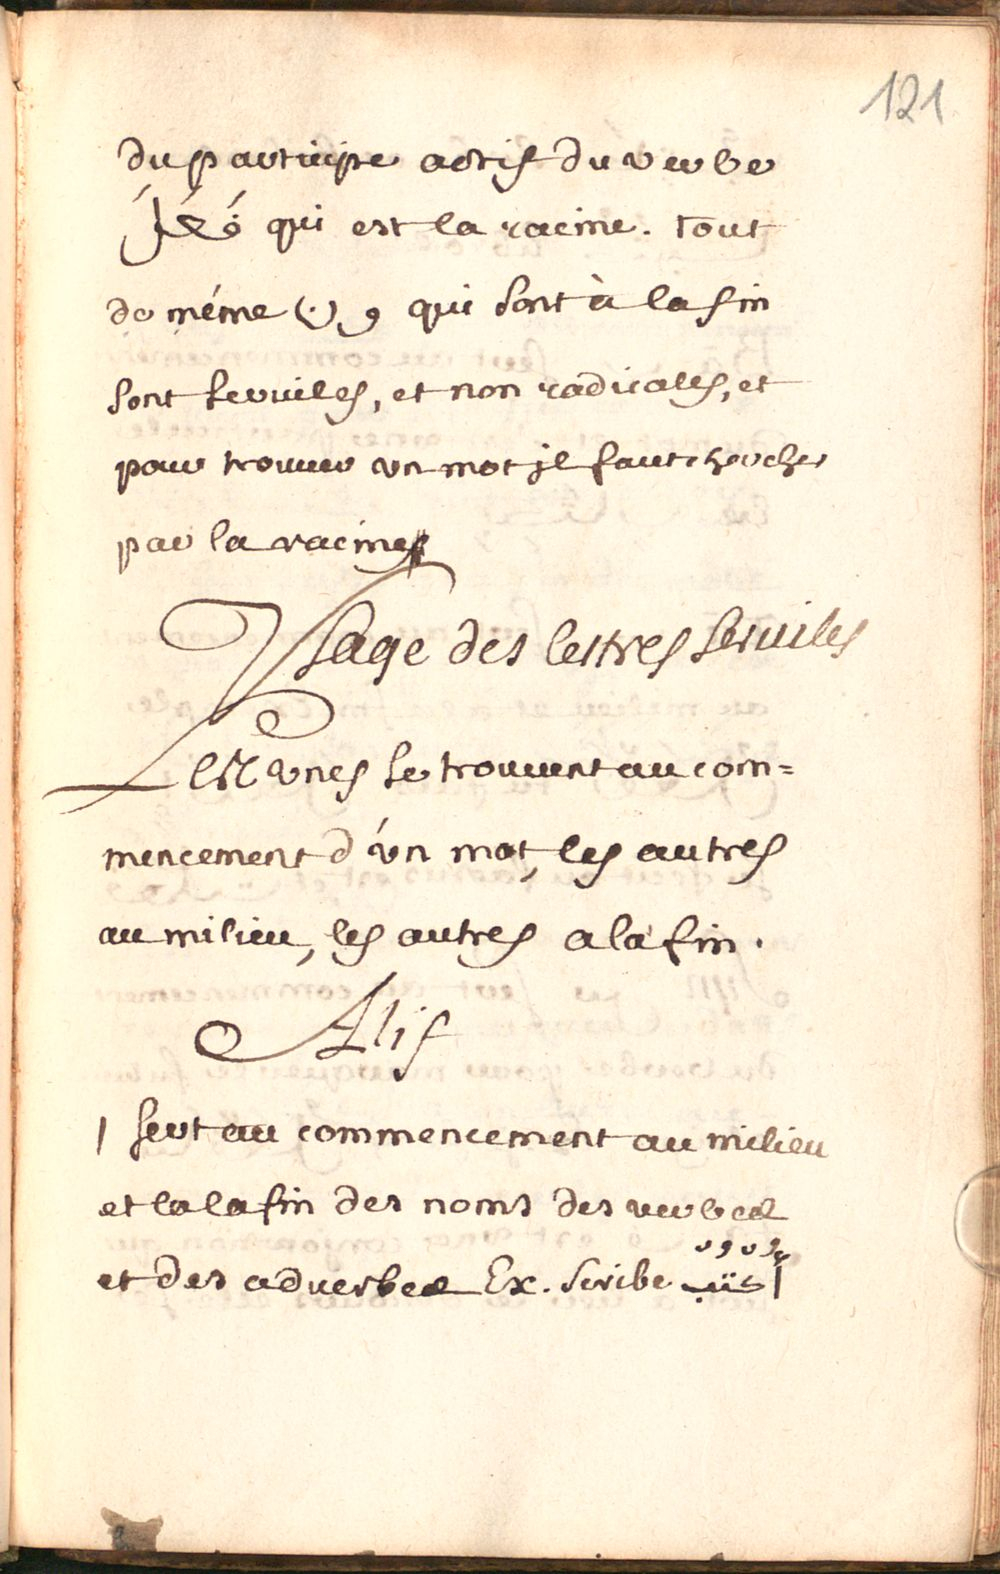 121
du participe actif du verbe
فَعَلَ qui est la racine. tout
de méme ن و qui sont à la fin
sont seruiles, et non radicales, et
pour trouuer vn mot jl faut chercher
par la racine
Vsage des lettres seruiles
Les vnes se trouuent au com=
mencement d'vn mot, les autres
au milieu, les autres a la fin.
Alif
ا sert au commencement au milieu
et la lafin des noms des verbes
et des aduerbes Ex. scribe اُكْتُبْ